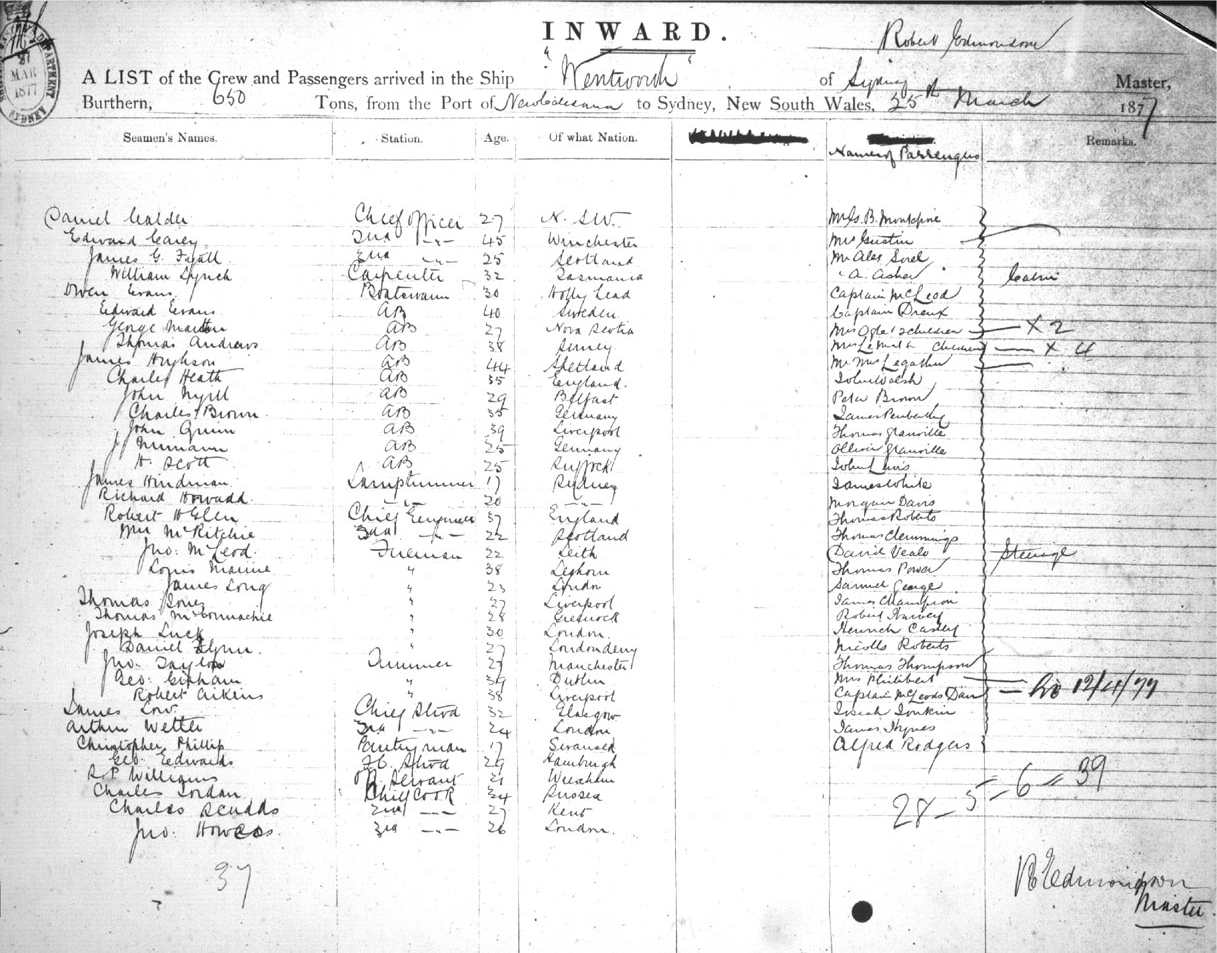 INWARD.
Robert Edmondson
A LIST of the Crew and Passengers arrived in the Ship "Wentworth" of Sydney Master,
Burthern, 650 Tons, from the Port of New Caledonia to Sydney, New South Wales, 25th March 1877
MAR
1877
SYDNEY
Seamen's Names. Station. Age. Of what Nation. Names of Passengers Remarks.
Daniel Calder Chief Officer 27 N. S.W.
Edward Carey 2nd 45 Winchester
James G. Fyall 3rd 25 Scotland Mr Alex Sorel
William Lynch Carpenter 32 Tasmania " A. Asher
Owen Evans Boatswain 30 Holly Head Captain McLeod
Edward Evans AB 40 Sweden Captain Dreux
George AB 27 Nova Scotia Mrs Ogle & 2 children X 2
Thomas Andrews AB 38 children X 4
James Hughson AB 44 Shetland Mr Mrs
Charles Heath AB 35 England. John Walsh
John AB 29 Belfast Peter Brown
Charles Brown AB 35 Germany James
John AB 39 Liverpool Thomas Granville
AB 25 Germany Granville
H. Scott AB 25 Suffock John Lewis
James Hindman Lamptrimmer 17 Sydney James White
Richard Howadd 20 Morgan Davis
Robert H Glen Chief Engineer 37 England Thomas Roberts
Wm McRitchie 2nd 22 Scotland Thomas Clemmings
Jno. McLeod. Fireman 22 Leith David Veale Steerage
Louis Marine " 38 Leghorn Thomas Power
James Long " 23 London Samuel George
Thomas " 27 Liverpool James Champion
Thomas McConnachie " 28 Greenock Robert Harvey
Joseph Luck " 30 London
Daniel Flynn. 27 Londonderry Roberts
Jno. Taylor Trimmer 27 Manchester Thomas Thompson
Geo. Graham " 39 Dublin Mrs Philibert
Robert Aikins " 38 Liverpool Captain McLeods 12/4/77
James Low. Chief Stwd 32 Glasgow
Arthur Wettle 2nd 24 London James Hynes
Christopher Phillip Pantryman 17 Swansea Alfred Rodgers
Geo. Edwards Stwd 29 Hamburgh
R P Williams Servant 21 Wrexham
Charles Jordan Chief Cook 34 Sussea
Charles Scudds 2nd 27 Kent
Jno. Howes. 3rd 26 London.
28 - 5 - 6 = 39
37
R Edmondson
Master